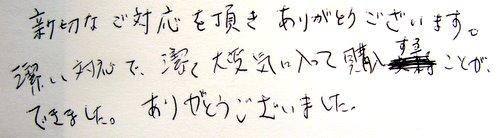 新切なご対応を頂きありがとうございます。
潔い対応で、潔く大変気に入って購入することが、
できました。ありがとうございました。